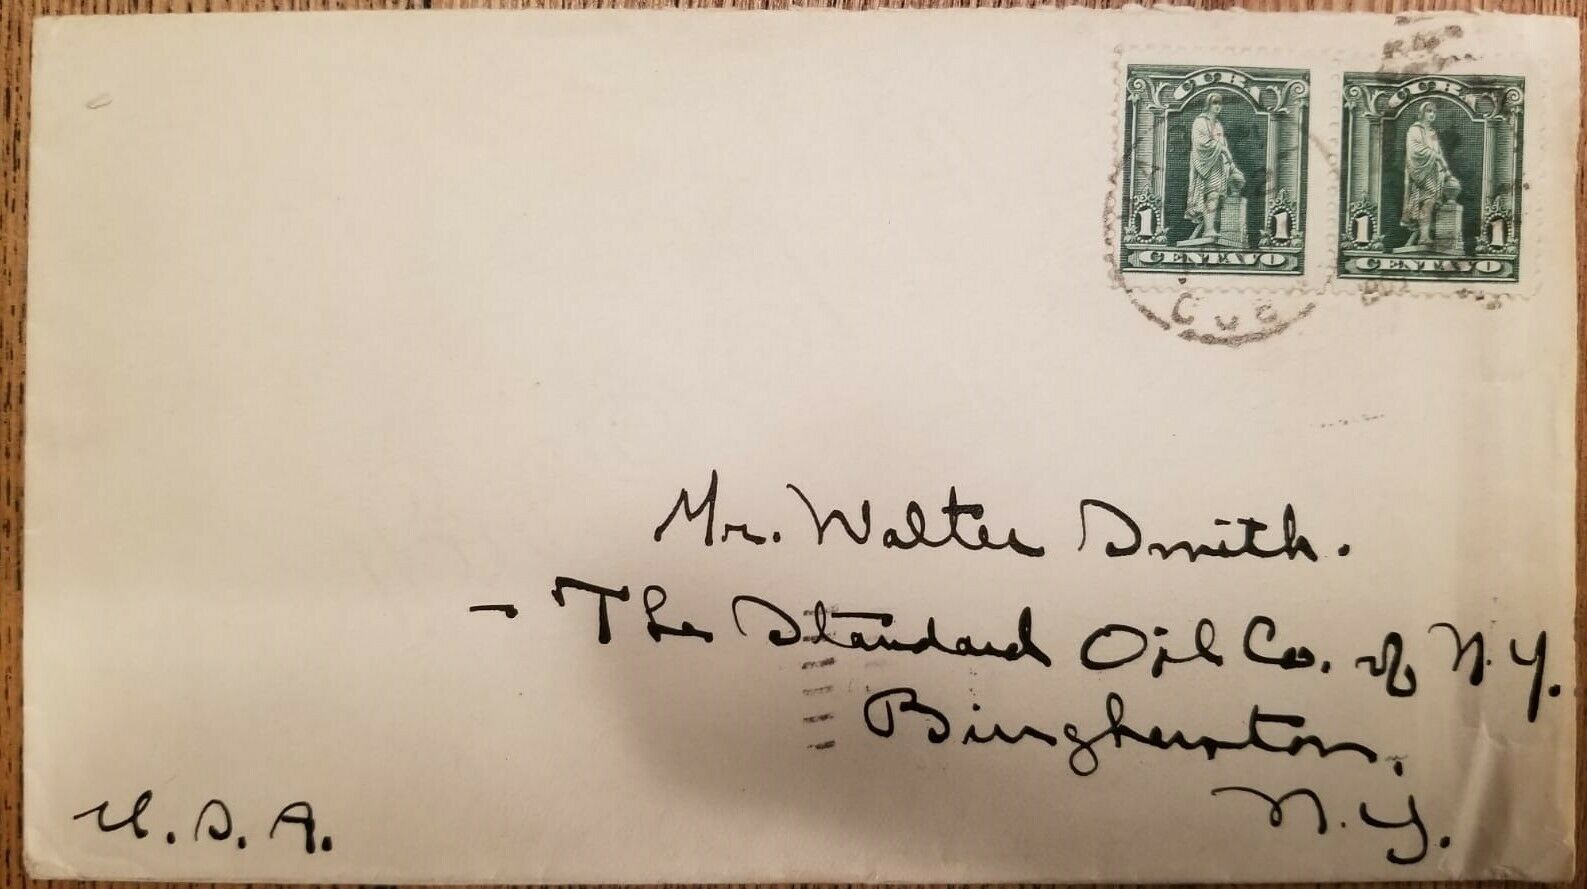 CUBA
1 1
CENTAVO
CUBA
1 1
CENTAVO
CUB
Mr. Walter Smith.
- The Standard Oil Co. of N.Y.
Binghamton,
N.Y.
U.S.A.